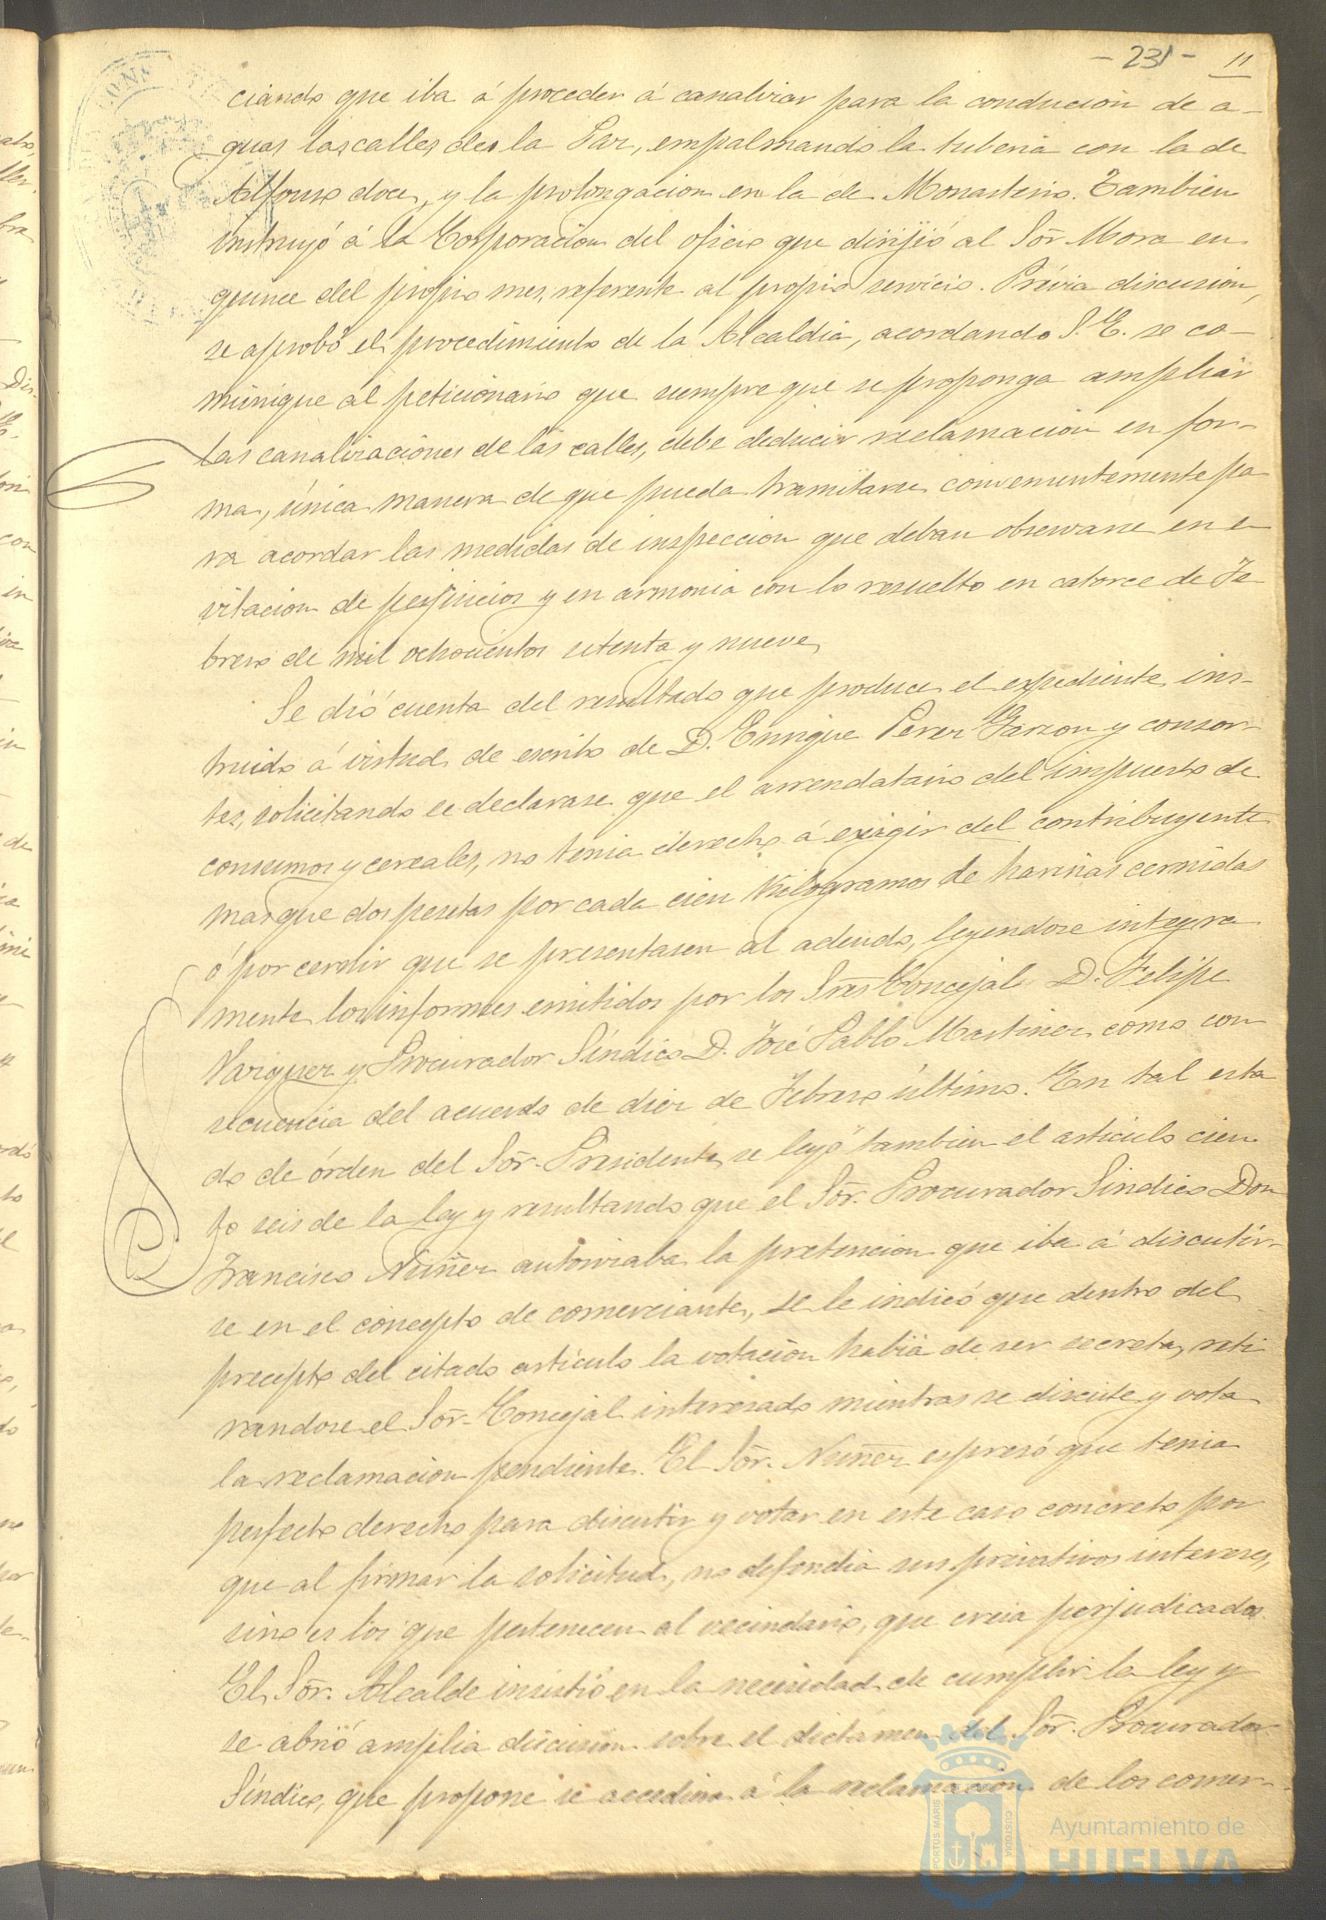 - 231 - 11
ciando que iba á proceder á canalizar para la conducion de a-
guas las calles de la Paz, empalmando la tuberia con la de
Alfonso doce, y la prolongacion en la de Monasterio. Tambien
instruyó á la Corporacion del oficio que dirijió al Sõr Mora en
quince del propio mes, referente al propio servicio. Prévia discusion,
se aprobó el procedimiento de la Alcaldia, acordando S. E. se co-
munique al peticionario que siempre que se proponga ampliar
las canalizaciones de las calles, debe deducir reclamacion en for-
ma, única manera de que pueda tramitarse convenientemente pa
ra acordar las medidas de inspeccion que deban observarse en e-
vitacion de perjuicios y en armonia con lo resuelto en catorce de Fe-
brero de mil ochocientos setenta y nueve.
Se dió cuenta del resultado que produce el expediente ins-
truido á virtud de escrito de D. Enrique Perez Garzon y consor-
tes, solicitando se declarase que el arrendatario del impuesto de
consumos y cereales, no tenia derecho á exigir del contribuyente
mas que dos pesetas por cada cien kilogramos de harinas cernidas
ó por cernir que se presentasen al adeudo, leyendose integra
mente los informes emitidos por los Sres Concejal D. Felipe
Vazquez y Procurador Síndico D. José Pablo Martinez como con
secuencia del acuerdo de diez de Febrero último. En tal esta
do de órden del Sõr. Presidente, se leyó tambien el artículo cien
to seis de la ley y resultando que el Sõr. Procurador Sindico Don
Francisco Nuñez autorizaba la pretencion que iba á discutir-
se en el concepto de comerciante, se le indicó que dentro del
precepto del citado artículo la votacion habia de ser secreta, reti
randose el Sõr. Concejal interesado mientras se discute y vota
la reclamacion pendiente. El Sõr. Nuñez espresó que tenia
perfecto derecho para discutir y votar en este caso concreto por
que al firmar la solicitud, no defendia sus privativos intereses,
sino es los que pertenecen al vecindario, que creia perjudicados.
El Sõr. Alcalde insistió en la necesidad de cumplir la ley y
se abrió amplia discusion sobre el dictamen del Sõr. Procurador
Síndico, que propone se accediera á la reclamacion de los comer-
PORTUS MARIS
CUSTODIA
Ayuntamiento de
HUELVA